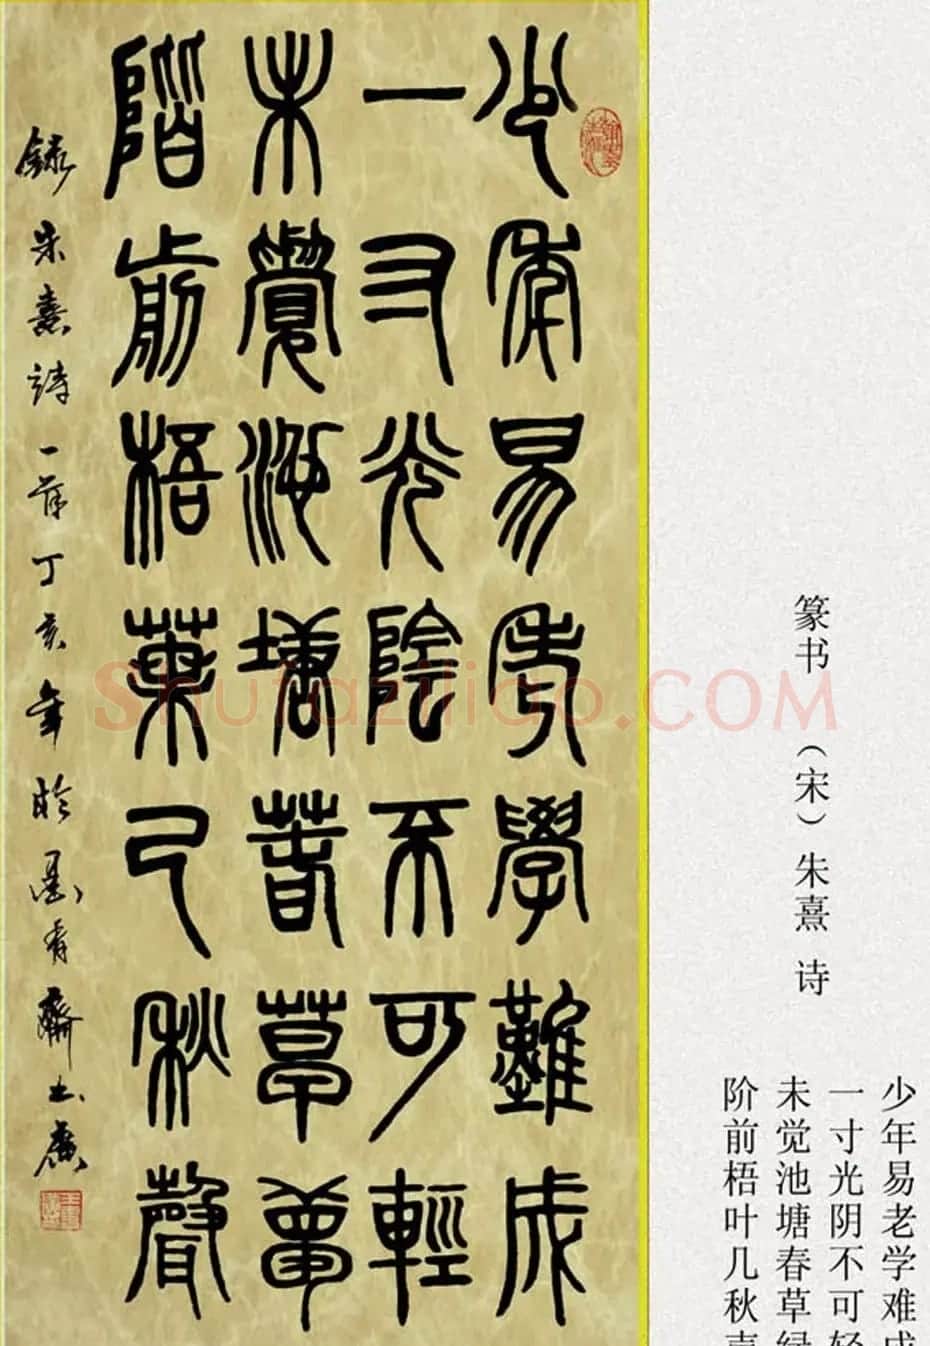 少年易老學難成
一寸光陰不可輕
未覺池塘春草夢
階前梧葉已秋聲
錄朱熹詩一首丁亥年於墨香齋
篆书 （宋）朱熹 诗
少年易老学难成
一寸光阴不可轻
未觉池塘春草绿
阶前梧叶几秋声
Shufaziliao.COM